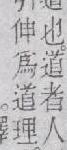 道也。道者人
引伸爲道理。